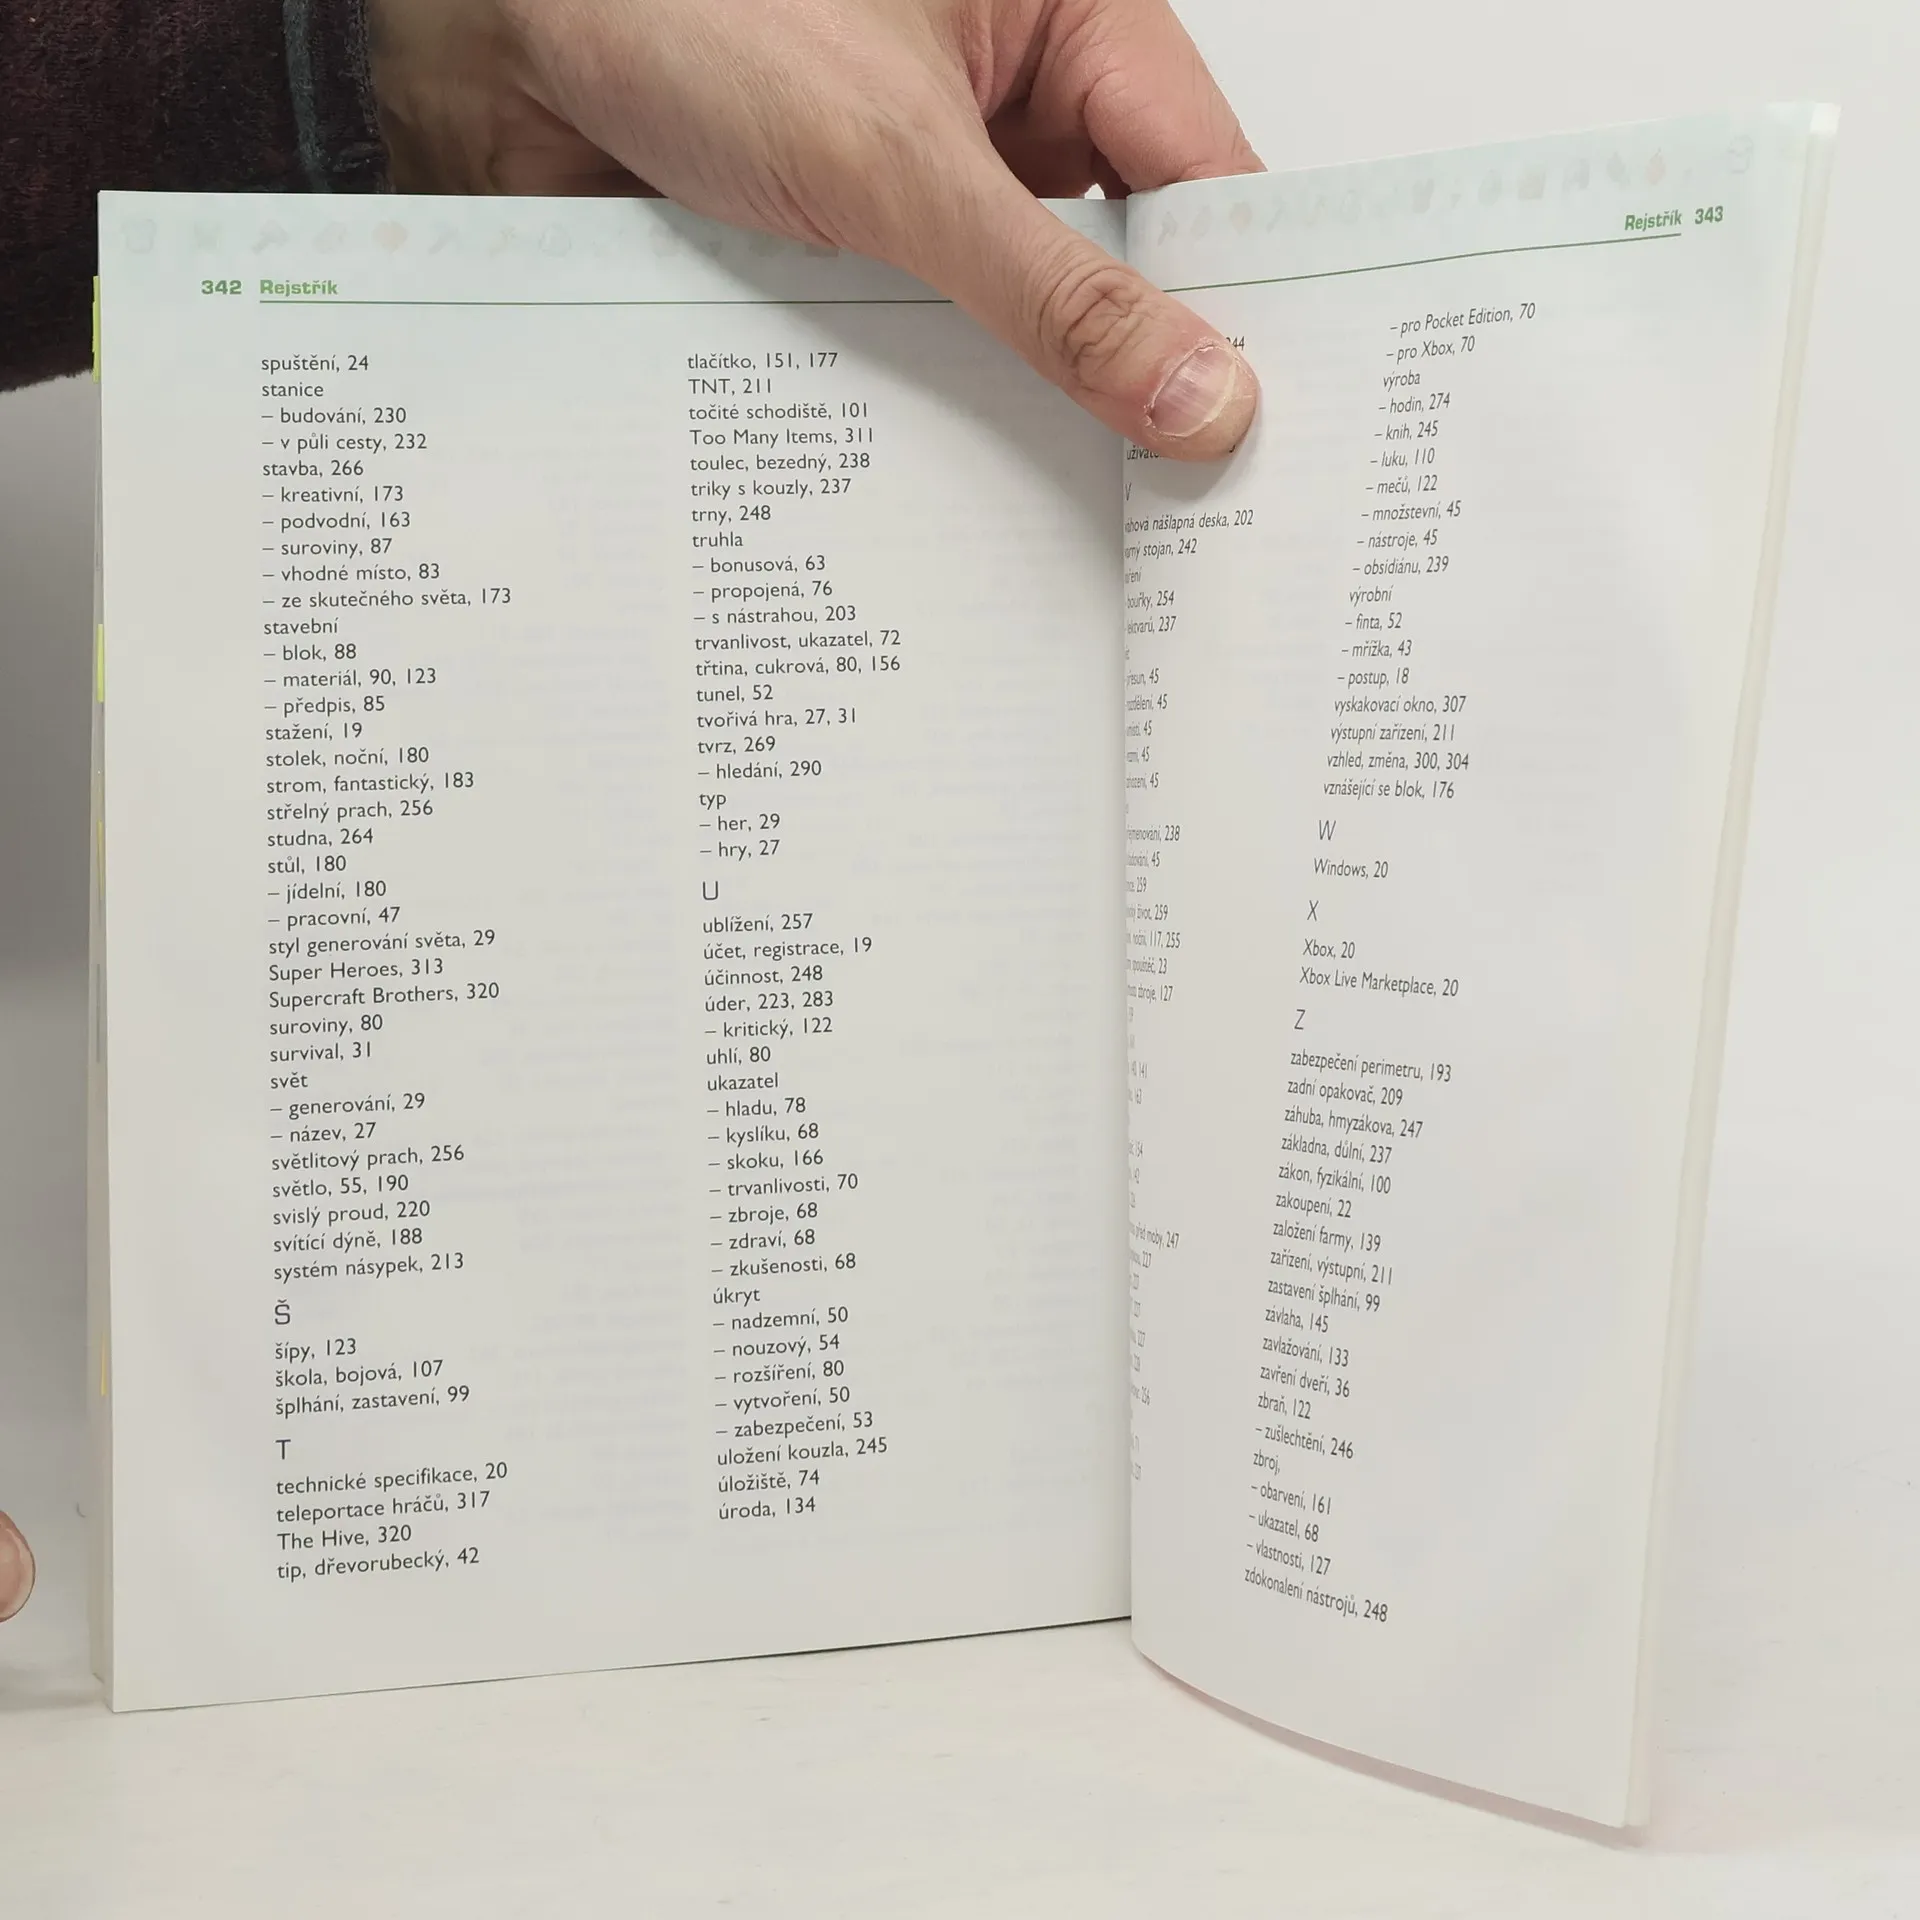 342 Rejstřík
spuštění, 24
stanice
– budování, 230
– v půli cesty, 232
stavba, 266
– kreativní, 173
– podvodní, 163
– suroviny, 87
– vhodné místo, 83
– ze skutečného světa, 173
stavební
– blok, 88
– materiál, 90, 123
– předpis, 85
stažení, 19
stolek, noční, 180
strom, fantastický, 183
střelný prach, 256
studna, 264
stůl, 180
– jídelní, 180
– pracovní, 47
styl generování světa, 29
Super Heroes, 313
Supercraft Brothers, 320
suroviny, 80
survival, 31
svět
– generování, 29
– název, 27
světlitový prach, 256
světlo, 55, 190
svislý proud, 220
svítící dýně, 188
systém násypek, 213
Š
šípy, 123
škola, bojová, 107
šplhání, zastavení, 99
T
technické specifikace, 20
teleportace hráčů, 317
The Hive, 320
tip, dřevorubecký, 42
tlačítko, 151, 177
TNT, 211
točité schodiště, 101
Too Many Items, 311
toulec, bezedný, 238
triky s kouzly, 237
trny, 248
truhla
– bonusová, 63
– propojená, 76
– s nástrahou, 203
trvanlivost, ukazatel, 72
třtina, cukrová, 80, 156
tunel, 52
tvořivá hra, 27, 31
tvrz, 269
– hledání, 290
typ
– her, 29
– hry, 27
U
ublížení, 257
účet, registrace, 19
účinnost, 248
úder, 223, 283
– kritický, 122
uhlí, 80
ukazatel
– hladu, 78
– kyslíku, 68
– skoku, 166
– trvanlivosti, 70
– zbroje, 68
– zdraví, 68
– zkušenosti, 68
úkryt
– nadzemní, 50
– nouzový, 54
– rozšíření, 80
– vytvoření, 50
– zabezpečení, 53
uložení kouzla, 245
úložiště, 74
úroda, 134
Rejstřík 343
V
nášlapná deska, 202
stojan, 242
bouřky, 254
237
45
45
45
45
45
238
45
259
život, 259
noční, 117, 255
23
zbroje, 127
141
163
před moby, 247
– pro Pocket Edition, 70
– pro Xbox, 70
výroba
– hodin, 274
– knih, 245
– luku, 110
– mečů, 122
– množstevní, 45
– nástroje, 45
– obsidiánu, 239
výrobní
– finta, 52
– mřížka, 43
– postup, 18
vyskakovací okno, 307
výstupní zařízení, 211
vzhled, změna, 300, 304
vznášející se blok, 176
W
Windows, 20
X
Xbox, 20
Xbox Live Marketplace, 20
Z
zabezpečení perimetru, 193
zadní opakovač, 209
záhuba, hmyzákova, 247
základna, důlní, 237
zákon, fyzikální, 100
zakoupení, 22
založení farmy, 139
zařízení, výstupní, 211
zastavení šplhání, 99
závlaha, 145
zavlažování, 133
zavření dveří, 36
zbraň, 122
– zušlechtění, 246
zbroj,
– obarvení, 161
– ukazatel, 68
– vlastnosti, 127
zdokonalení nástrojů, 248